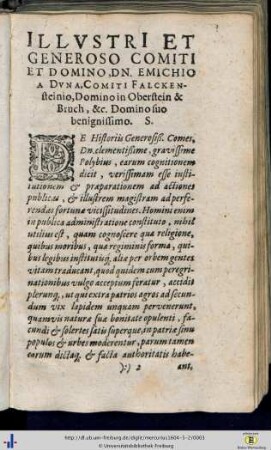 ILLVSTRI ET
GENEROSO COMITI
ET DOMINO, DN. EMICHIO
A DVNA. COMITI FALCKEN-
steinio, Domino in Oberstein &
Bruch, &c. Domino suo
benignissimo. S.
DE Historiis Generosiss. Comes,
Dn. clementissime, gravissime
Polybius, earum cognitionem
dicit, verissimam esse insti-
tutionem & præparationem ad actiones
publicas, & illustrem magistram ad perfe-
rendas fortunæ vicissitudines. Homini enim
in publica administratione constituto, nihil
utilius est, quam cognoscere qua religione,
quibus moribus, qua regiminis forma, qui-
bus legibus institutisq́; aliæ per orbem gentes
vitam traducant, quod quidem cum peregri-
nationibus vulgo acceptum feratur, accidit
plerunq́;, ut qui extra patrios agros ad secun-
dum vix lapidem unquam pervenerunt,
quamvis naturæ suæ bonitate opulenti, fa-
cundi & solertes satis superque, in patriæ sinu
populos & urbes moderentur, parum tamen
eorum dictaq́; & facta authoritatis habe-
):( 2 ant,
http://dl.ub.uni-freiburg.de/diglit/mercurius1604-5-2/0003
© Universitätsbibliothek Freiburg